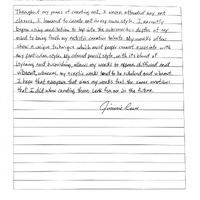 Throughout my years of creating art, I never attended any art
classes, I learned to create art in my own style. I recently
began using meditation to tap into the subconscious depths of my
mind to bring forth my artistic creative talents. My works often
show a unique technique which most people cannot associate with
any particular style. My colored pencil style, with its blend of
layering and burnishing, allows my works to appear diffused and
vibrant, whereas my acrylic works tend to be subdued and vibrant.
I hope that everyone that views my works feel the same emotions
that I did when creating them. Look for me in the future.